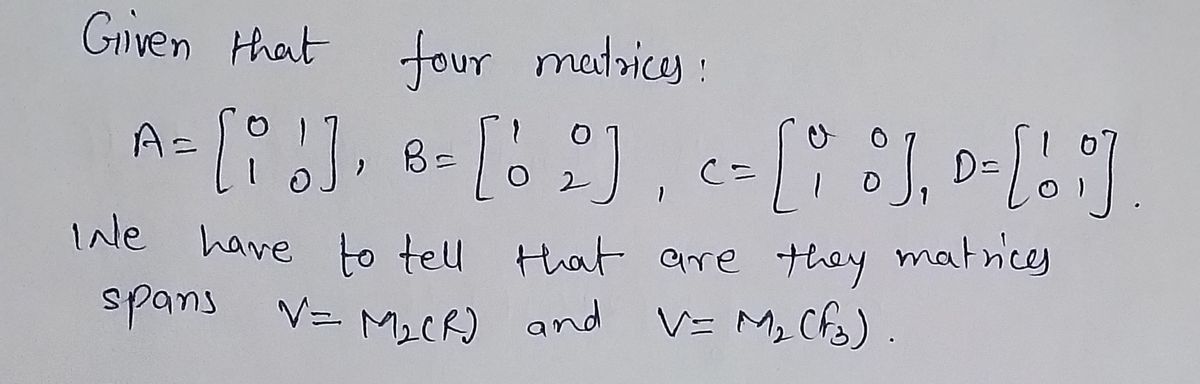 Given that four matrices:
A = [0 1; 1 0], B = [1 0; 0 2], C = [0 0; 1 0], D = [1 0; 0 1].
We have to tell that are they matrices
spans V = M₂(R) and V = M₂(f₃).